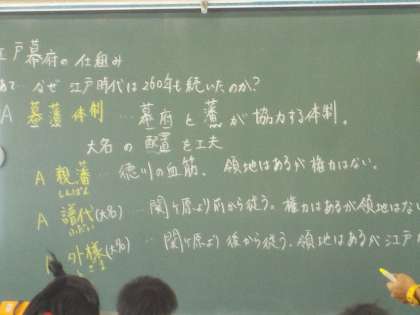 江戸幕府の仕組み
あて…なぜ江戸時代は260年も続いたのか?
A 幕藩体制 … 幕府と藩が協力する体制。
大名の配置を工夫
A 親藩 … 徳川の血筋、領地はあるが権力はない。
しんぱん
A 譜代(大名) … 関ヶ原より前から従う。権力はあるが領地はない
ふだい
A 外様(大名) … 関ヶ原より後から従う、領地はあるが江戸
とざま